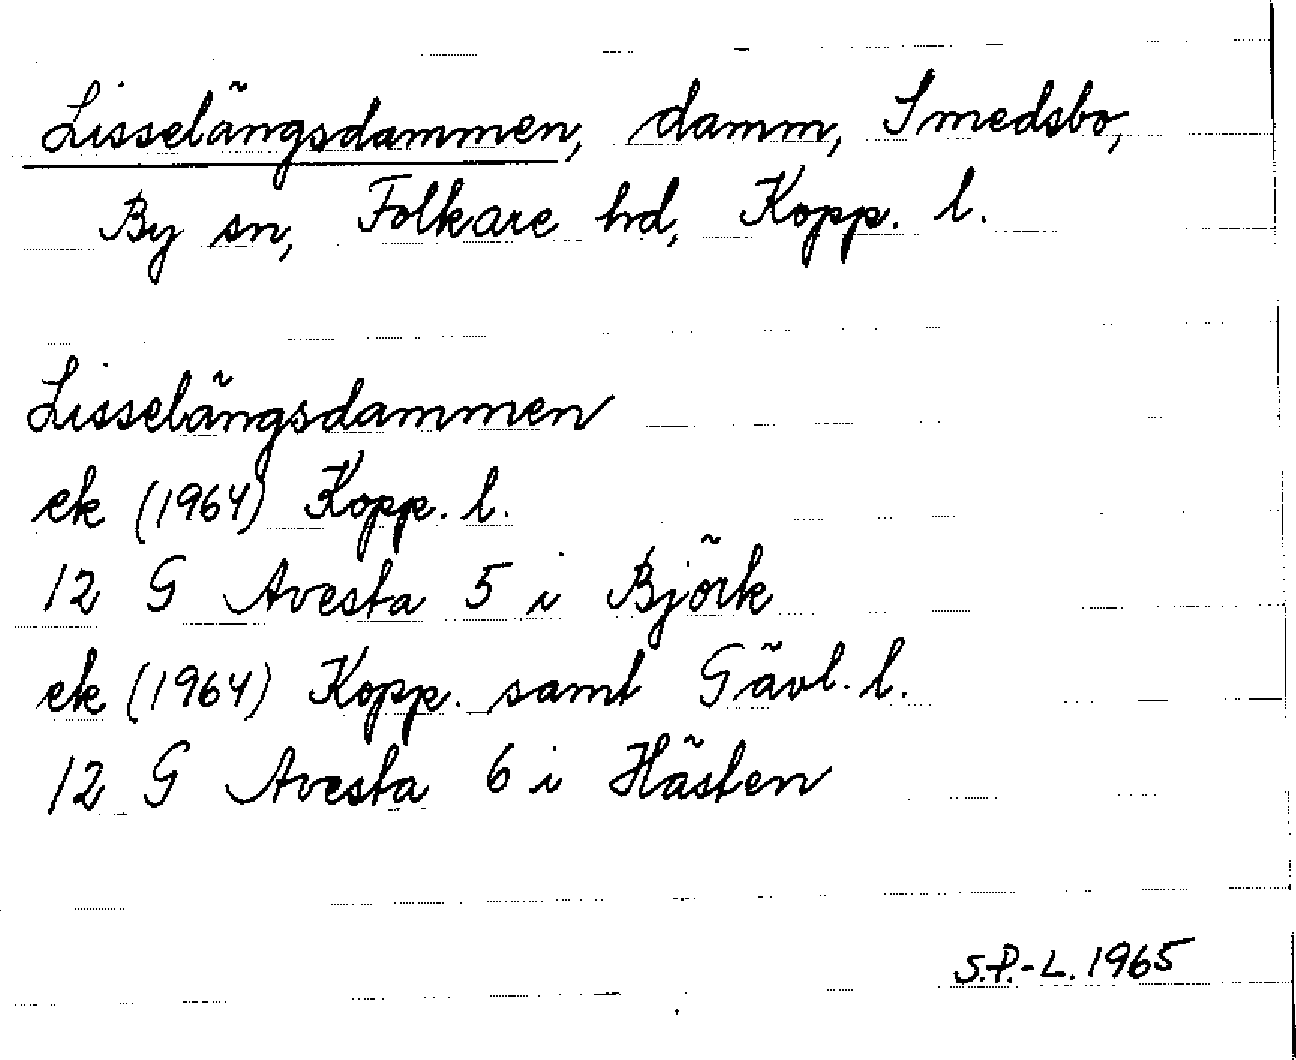 Lisselängsdammen, damm, Smedsbo,
By sn, Folkare hd, Kopp. l.
Lisselängsdammen
ek (1964) Kopp. l.
12 G Avesta 5 i Björk
ek (1964) Kopp. samt Gävl. l.
12 G Avesta 6 i Hästen
S.P.-L. 1965